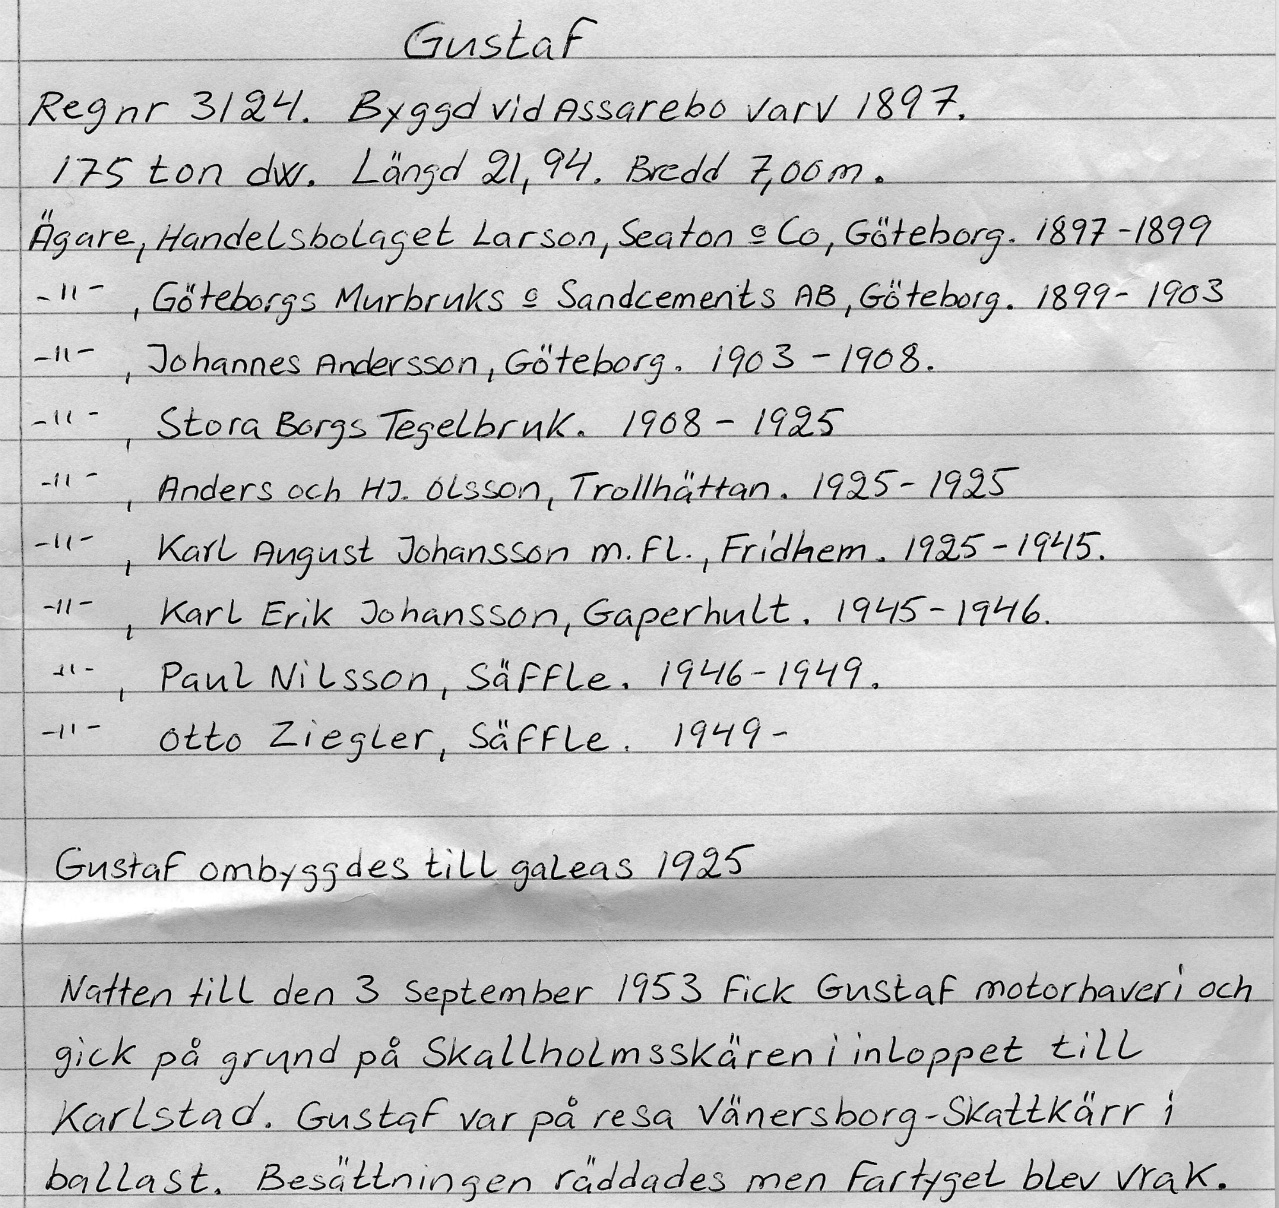 Gustaf
Regnr 3124. Byggd vid Assarebo varv 1897.
175 ton dw. Längd 21,94. Bredd 7,00m.
Ägare, Handelsbolaget Larson, Seaton o Co, Göteborg. 1897-1899
-"- , Göteborgs Murbruks o Sandcements AB, Göteborg. 1899-1903
-"- , Johannes Andersson, Göteborg. 1903-1908.
-"- , Stora Borgs Tegelbruk. 1908-1925
-"- , Anders och HJ. Olsson, Trollhättan. 1925-1925
-"- , Karl August Johansson m.fl., Fridhem. 1925-1945.
-"- , Karl Erik Johansson, Gaperhult. 1945-1946.
-"- , Paul Nilsson, Säffle. 1946-1949.
-"- Otto Ziegler, Säffle. 1949-
Gustaf ombyggdes till galeas 1925
Natten till den 3 september 1953 fick Gustaf motorhaveri och
gick på grund på Skallholmsskären i inloppet till
Karlstad. Gustaf var på resa Vänersborg-Skattkärr i
ballast. Besättningen räddades men fartyget blev vrak.